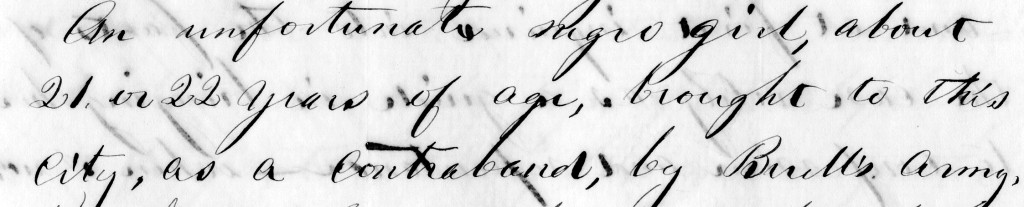 An unfortunate negro girl, about
21 or 22 years of age, brought to this
city, as a contraband, by Buell's army,